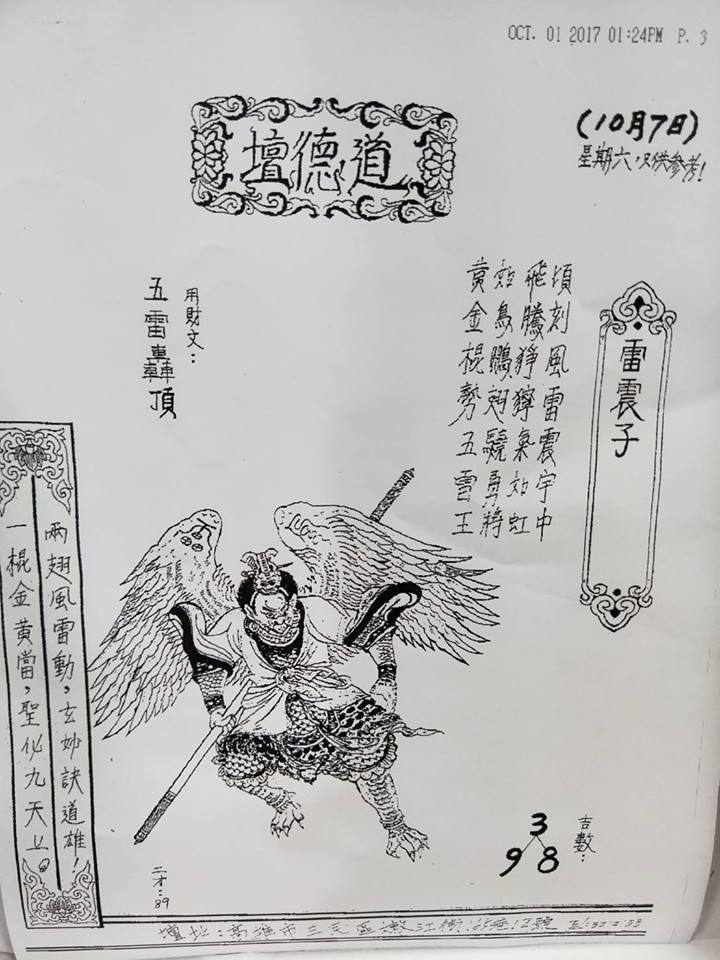 OCT. 01 2017 01:24PM P. 3
道德壇
(10月7日)
星期六,只供参考!
雷震子
頃刻風雷震宇中
飛騰猙獰氣如虹
如鳥鵬翅驍勇將
黃金棍勢五雷王
用財文：
五雷轟頂
兩翅風雷動，玄妙訣道雄！
一棍金黃當，聖仙九天上。
吉數：
3
9 8
二才：89
壇址：高雄市三民區嫩江街
12號